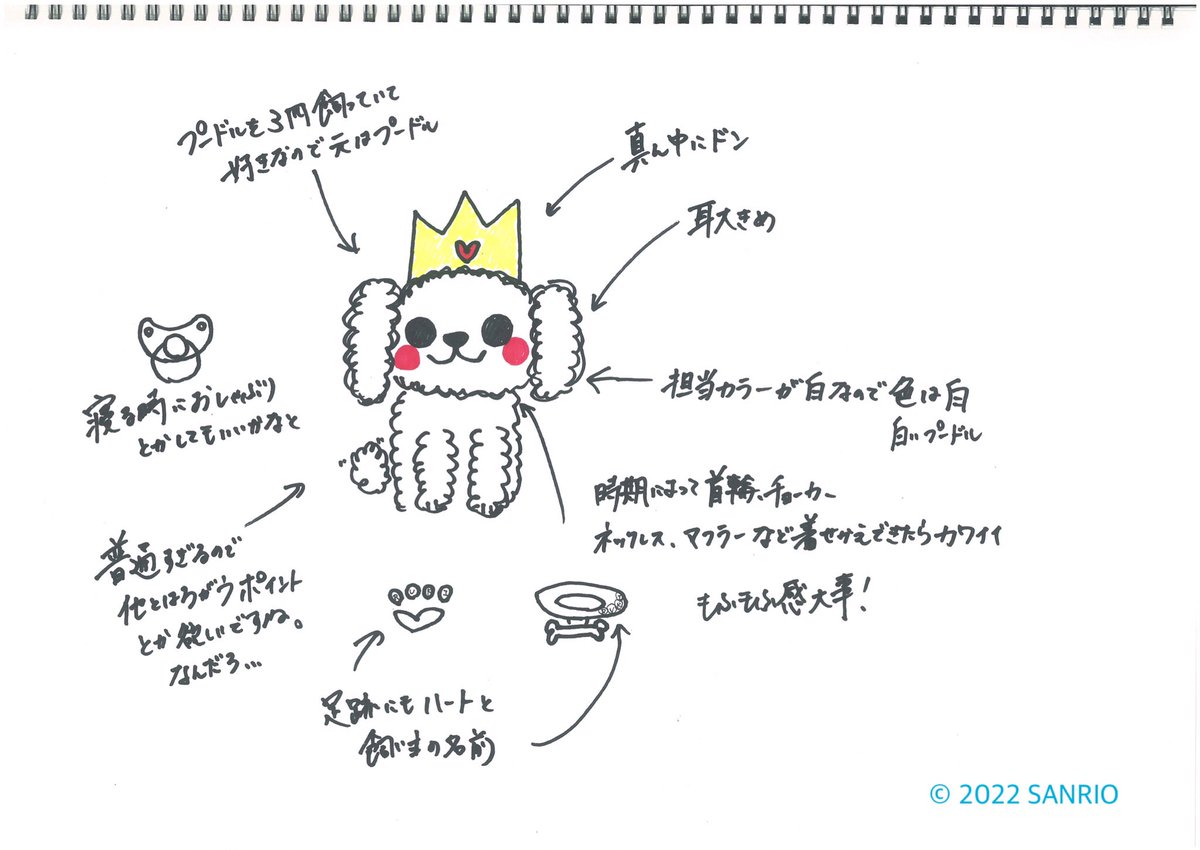 プードルを3円飼っていて
好きなので元はプードル
真ん中にドン
耳大きめ
担当カラーが白なので色は白
白いプードル
寝る時におしゃぶり
とかしてもいいかなと
時期によって首輪、チョーカー
ネックレス、マフラーなど着せかえできたらカワイイ
もふもふ感大事!
普通すぎるので
他とはちがうポイント
とか欲しいですね。
なんだろ…
足跡にもハートと
飼い主の名前
© 2022 SANRIO